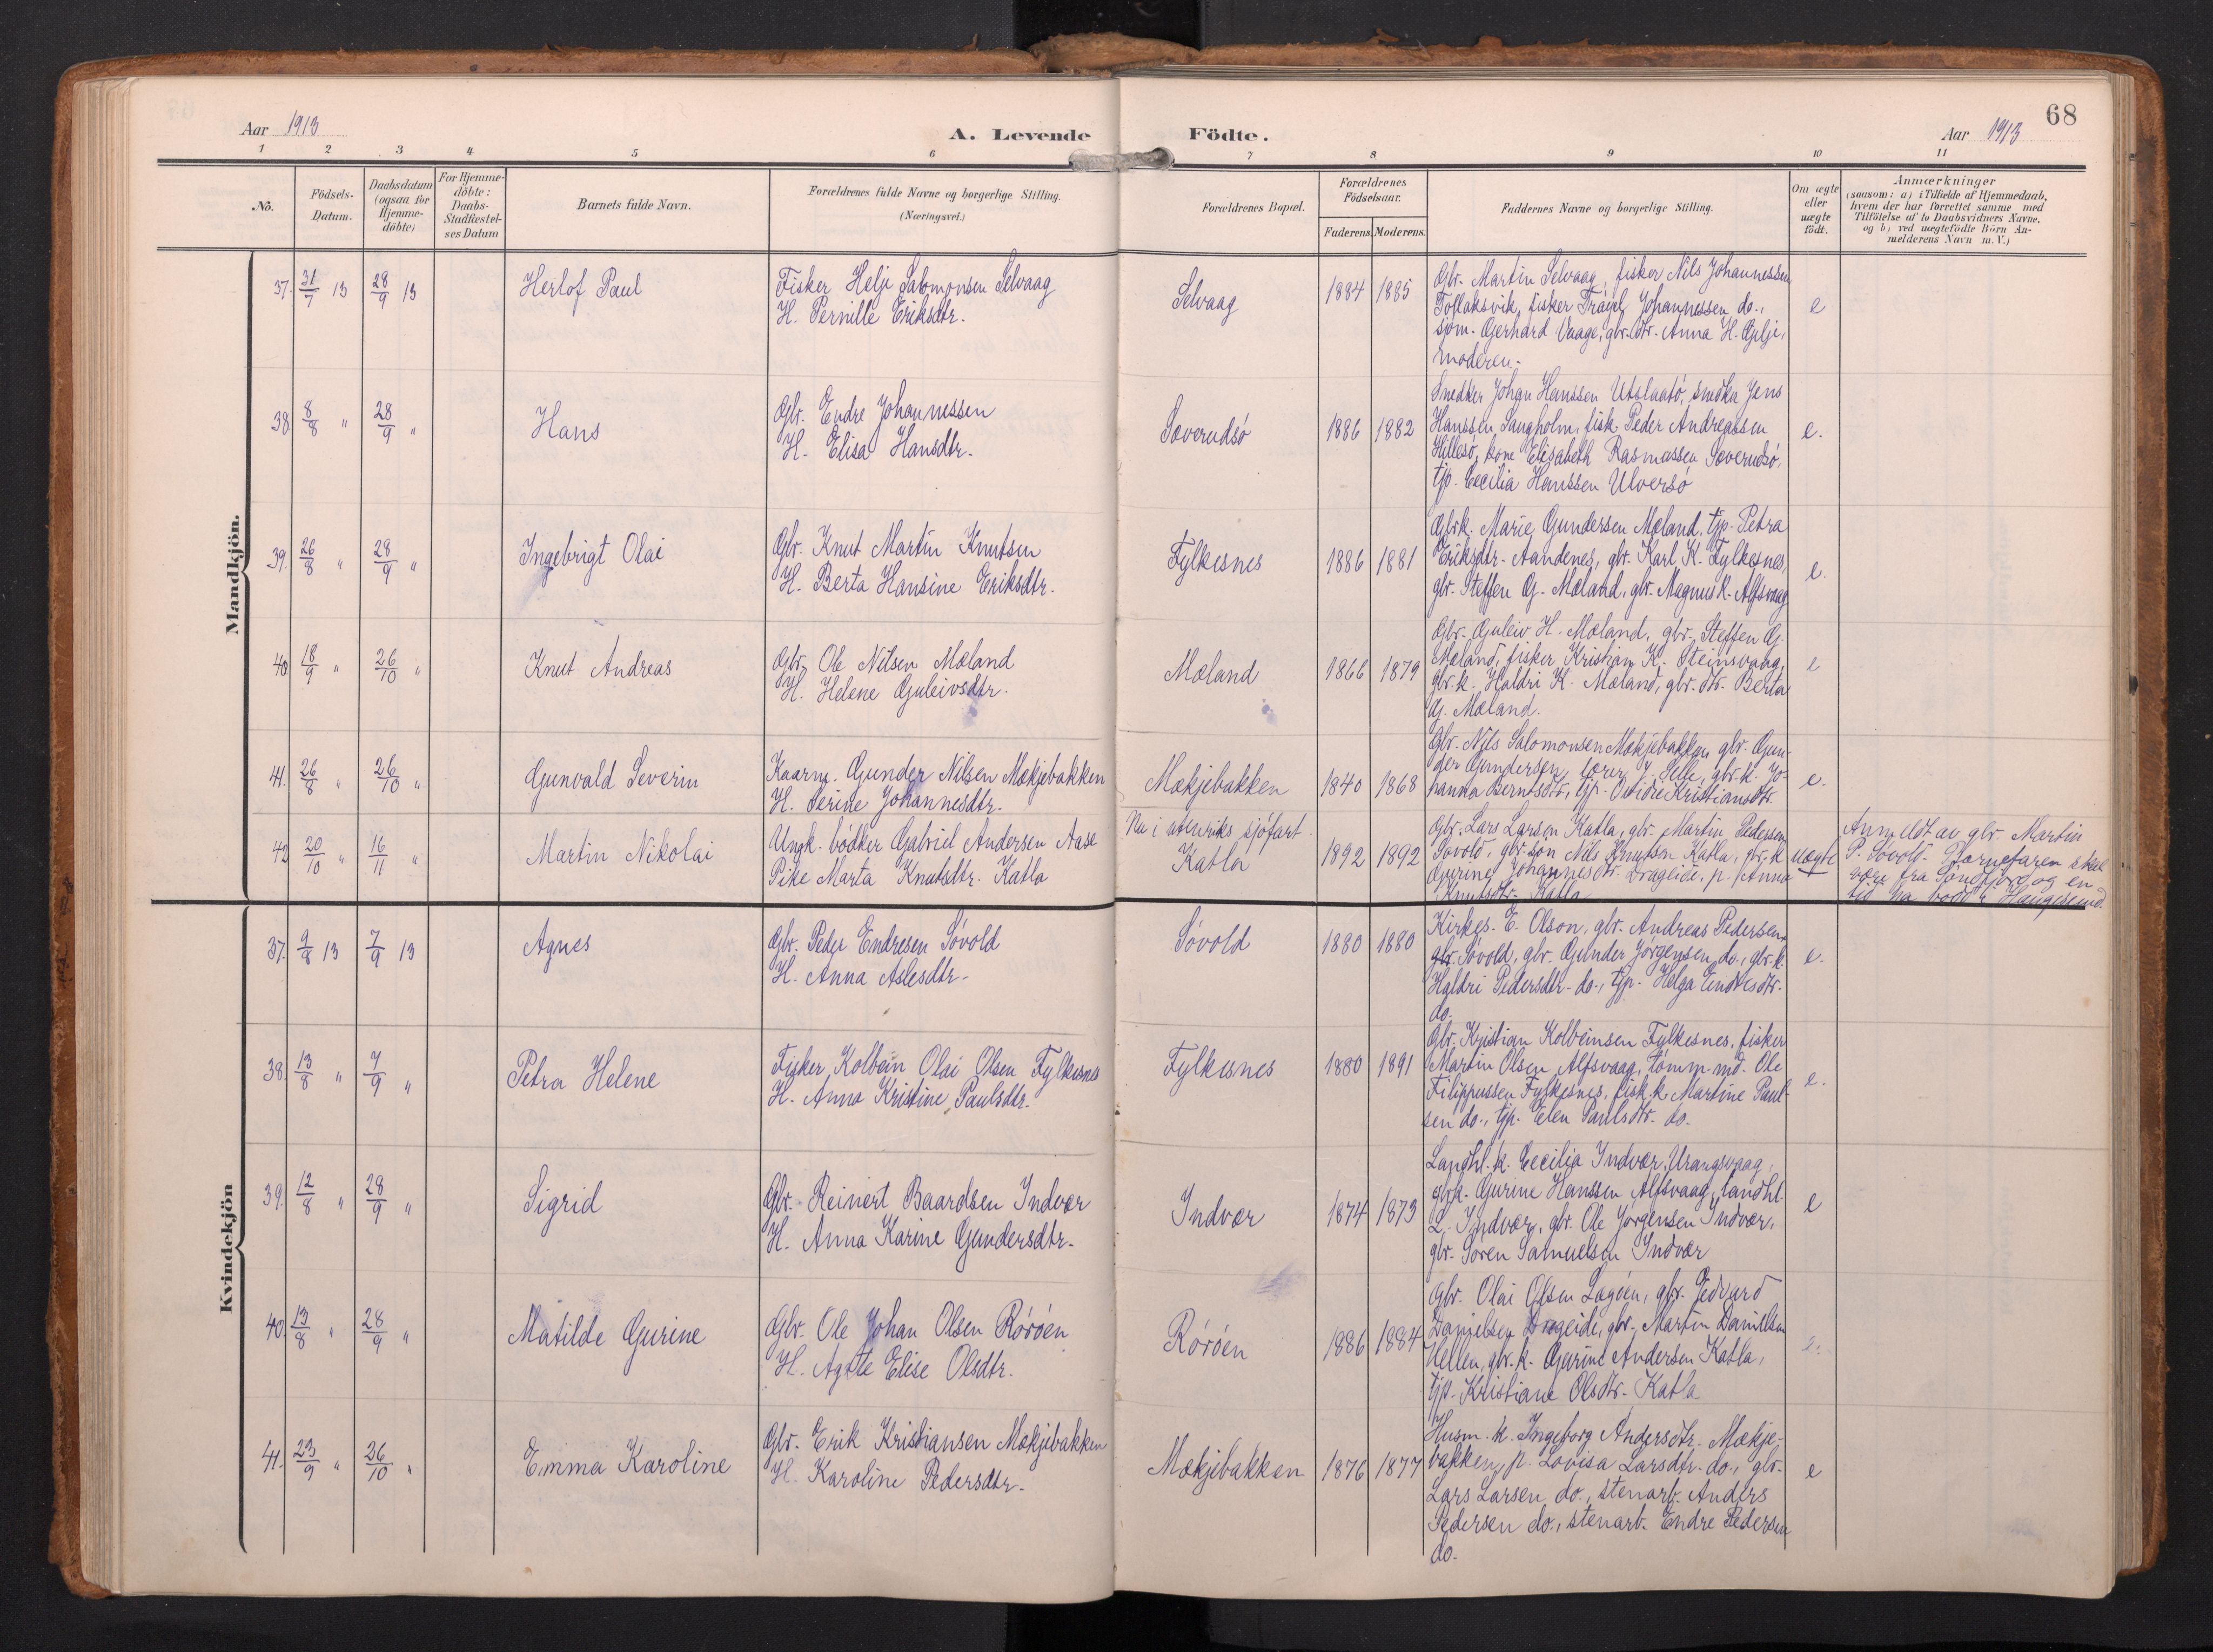 68
Aar 1913
A. Levende Födte.
Aar 1913
1 2 3 4 5 6 7 8 9 10 11
No.
Födsels-Datum.
Daabsdatum (ogsaa for Hjemme-döbte)
For Hjemme-döbte: Daabs-Stadfæstel-ses Datum
Barnets fulde Navn.
Forældrenes fulde Navne og borgerlige Stilling.
(Næringsvei.)
Forældrenes Bopæl.
Forældrenes Födselsaar.
Faderens. Moderens.
Faddernes Navne og borgerlige Stilling.
Om ægte eller uægte födt.
Anmærkninger
(saasom: a) i Tilfælde af Hjemmedaab,
hvem der har forrettet samme med
Tilföielse af to Daabsvidners Navne,
og b) ved uægtefödte Börn An-
melderens Navn m. V.)
Mandkjön.
37. 31/7 13 28/9 13 Herlof Paul
Fisker Helje Salomonsen Selvaag
H. Pernille Eriksdtr.
Selvaag 1884 1885
Gbr. Martin Selvaag, fisker Nils Johannessen
Tollaksvik, fisker Johannessen do.,
sjøm. Gerhard Vaage, gbr.dtr. Anna H. Gilje,
moderen.
e
38 8/8 " 28/9 " Hans
Gbr. Endre Johannessen
H. Elisa Hansdtr.
Soverudsø 1886 1882
Snedker Johan Hanssen Utslaatø, snedker Jens
Hanssen Langholm, fisk. Peder Andreassen
Hillesø, kone Elisabeth Rasmussen Soverudsø,
tjp. Cecilia Hanssen Ulversø
e.
39. 26/8 " 28/9 " Ingebrigt Olai
Gbr. Knut Martin Knutsen
H. Berta Hansine Eriksdtr.
Fylkesnes 1886 1881
Gbrk. Marie Gundersen Mæland, tjp. Petra
Eriksdtr. Aandenes, gbr. Karl K. Fylkesnes,
gbr. Steffen G. Mæland, gbr. Magnus K. Alfsvaag
e.
40. 18/9 " 26/10 " Knut Andreas
Gbr. Ole Nilsen Mæland
H. Helene Guleivsdtr.
Mæland 1866 1879
Gbr. Guleiv H. Mæland, gbr. Steffen G.
Mæland, fisker Kristian K. Steinsvaag,
gbr.k. Haldri K. Mæland, gbr.dtr. Berta
G. Mæland.
e
41. 26/8 " 26/10 " Gunvald Severin
Kaarm. Gunder Nilsen Mækjebakken
H. Serine Johannesdtr.
Mækjebakken 1840 1868
Gbr. Nils Salomonsen Mækjebakken, gbr. Gun-
der Gundersen, lærer J. Selle, gbr.k. Jo-
hanna Berntsdtr., tjp. Ovidie Kristiansdtr.
e.
42 20/10 " 16/11 " Martin Nikolai
Ungk. bødker Gabriel Andersen Aase
Pike Marta Knutsdtr. Katla
Nu i utenriks sjøfart
Katla 1892 1892
Gbr. Lars Larsen Katla, gbr. Martin Pedersen
Søvold, gbr.søn Nils Knutsen Katla, gbr.k.
Gurine Johannesdtr. Drageide, p. Anna
Knutsdtr. Katla
uægte
Anmeldt av gbr. Martin
P. Søvold. Barnefaren skal
være fra Söndfjord og en
tid ha bodd i Haugesund.
Kvindekjön
37. 9/8 13 7/9 13 Agnes
Gbr. Peder Endresen Søvold
H. Anna Aslesdtr.
Søvold 1880 1880
Kirkes. E. Olson, gbr. Andreas Pedersen
gbr. Søvold, gbr. Gunder Jørgensen do., gbr.k.
Haldri Pedersdtr. do., tjp. Helga Endresdtr.
do.
e.
38. 13/8 " 7/9 " Petra Helene
Fisker Kolbein Olai Olsen Fylkesnes
H. Anna Kristine Paulsdtr.
Fylkesnes 1880 1891
Gbr. Kristian Kolbeinsen Fylkesnes, fisker
Martin Olsen Alfsvaag, tømm.md. Ole
Filippussen Fylkesnes, fisk.k. Martine Paul-
sen do., tjp. Elen Paulsdtr. do.
e.
39. 12/8 " 28/9 " Sigrid
Gbr. Reinert Baardsen Indvær
H. Anna Karine Gundersdtr.
Indvær 1874 1873
Landhl.k. Cecilia Indvær, Urangsvaag,
gbrk. Gurine Hanssen Alfsvaag, landhl.
L. Indvær, gbr. Ole Jørgensen Indvær,
gbr. Søren Samuelsen Indvær
e
40. 13/8 " 28/9 " Matilde Gurine
Gbr. Ole Johan Olsen Rørøen
H. Agate Elise Olsdtr.
Rørøen 1886 1884
Gbr. Olai Olsen Lagøen, gbr. Jedvard
Danielsen Drageide, gbr. Martin Danielsen
Hellen, gbr.k. Gurine Andersen Katla,
tjp. Kristiane Olsdtr. Katla
e.
41. 23/9 " 26/10 " Emma Karoline
Gbr. Erik Kristiansen Mækjebakken
H. Karoline Pedersdtr.
Mækjebakken 1876 1877
Husm.k. Ingeborg Andersdtr. Mækje-
bakken, p. Lovisa Larsdtr. do., gbr.
Lars Larsen do., stenarb. Anders
Pedersen do., stenarb. Endre Pedersen
do.
e